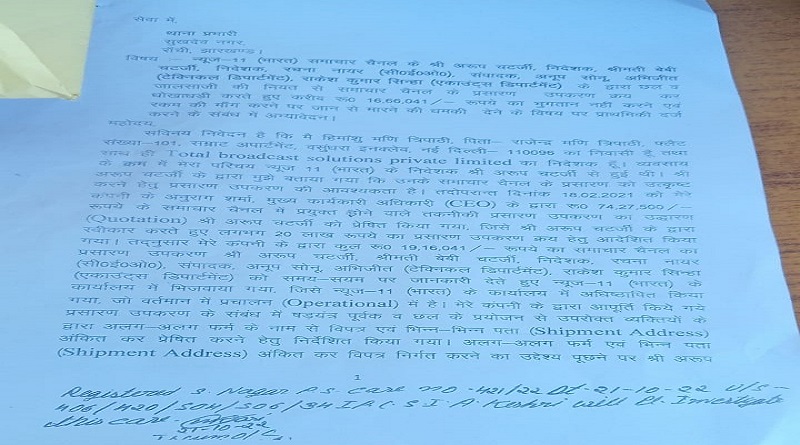 सेवा में,
थाना प्रभारी
सुखदेव नगर,
राँची, झारखण्ड।
विषय :– न्यूज–11 (भारत) समाचार चैनल के श्री अरूप चटर्जी, निदेशक, श्रीमती बेबी
चटर्जी, निदेशक, रचना नायर (सी०ई०ओ०), संपादक, अनूप सोनू, अभिजीत
(टेक्निकल डिपार्टमेंट), राकेश कुमार सिन्हा (एकाउंट्स डिपार्टमेंट) के द्वारा छल व
जालसाजी की नियत से समाचार चैनल के प्रसारण उपकरण क्रय कर
धोखाधड़ी करते हुए करीब रू० 16,66,041/– रूपये का भुगतान नहीं करने एवं
रकम की माँग करने पर जान से मारने की धमकी देने के विषय पर प्राथमिकी दर्ज
करने के संबंध में अभ्यावेदन।
महोदय,
सविनय निवेदन है कि मैं हिमांशु मणि त्रिपाठी, पिता– राजेन्द्र मणि त्रिपाठी, फ्लैट
संख्या–101, सम्राट अपार्टमेंट, वसुंधरा इनक्लेव, नई दिल्ली– 110096 का निवासी हूँ तथा
साथ ही Total broadcast solutions private limited का निदेशक हूँ। व्यवसाय
के क्रम में मेरा परिचय न्यूज 11 (भारत) के निदेशक श्री अरूप चटर्जी से हुई थी। श्री
अरूप चटर्जी के द्वारा मुझे बताया गया कि उनके समाचार चैनल के प्रसारण को उत्कृष्ट
करने हेतु प्रसारण उपकरण की आवश्यकता है। तदोपरान्त दिनांक 18.02.2021 को मेरे
कंपनी के अनुराग शर्मा, मुख्य कार्यकारी अधिकारी (CEO) के द्वारा रू० 74,27,500/–
रूपये के समाचार चैनल में प्रयुक्त होने वाले तकनीकी प्रसारण उपकरण का उद्धरण
(Quotation) श्री अरूप चटर्जी को प्रेषित किया गया, जिसे श्री अरूप चटर्जी के द्वारा
स्वीकार करते हुए लगभग 20 लाख रूपये का प्रसारण उपकरण क्रय हेतु आदेशित किया
गया। तद्नुसार मेरे कंपनी के द्वारा कुल रू० 19,16,041/– रूपये का समाचार चैनल का
प्रसारण उपकरण श्री अरूप चटर्जी, श्रीमती बेबी चटर्जी, निदेशक, रचना नायर
(सी०ई०ओ०), संपादक, अनूप सोनू, अभिजीत (टेक्निकल डिपार्टमेंट), राकेश कुमार सिन्हा
(एकाउंट्स डिपार्टमेंट) को समय–समय पर जानकारी देते हुए न्यूज–11 (भारत) के
कार्यालय में भिजवाया गया, जिसे न्यूज–11 (भारत) के कार्यालय में अधिष्ठापित किया
गया, जो वर्तमान में प्रचालन (Operational) में है। मेरे कंपनी के द्वारा आपूर्ति किये गये
प्रसारण उपकरण के संबंध में षड्यंत्र पूर्वक व छल के प्रयोजन से उपरोक्त व्यक्तियों के
द्वारा अलग–अलग फर्म के नाम से विपत्र एवं भिन्न–भिन्न पता (Shipment Address)
अंकित कर प्रेषित करने हेतु निर्देशित किया गया। अलग–अलग फर्म एवं भिन्न पता
(Shipment Address) अंकित कर विपत्र निर्गत करने का उद्देश्य पूछने पर श्री अरूप
1
Registered S. Nagar P.S. Case no - 421/22 Dt - 21-10-22 U/S -
406/420/504/506/34 I.P.C. S.I. A. Keshri will Pl. Investigate
this case.
21-10-22